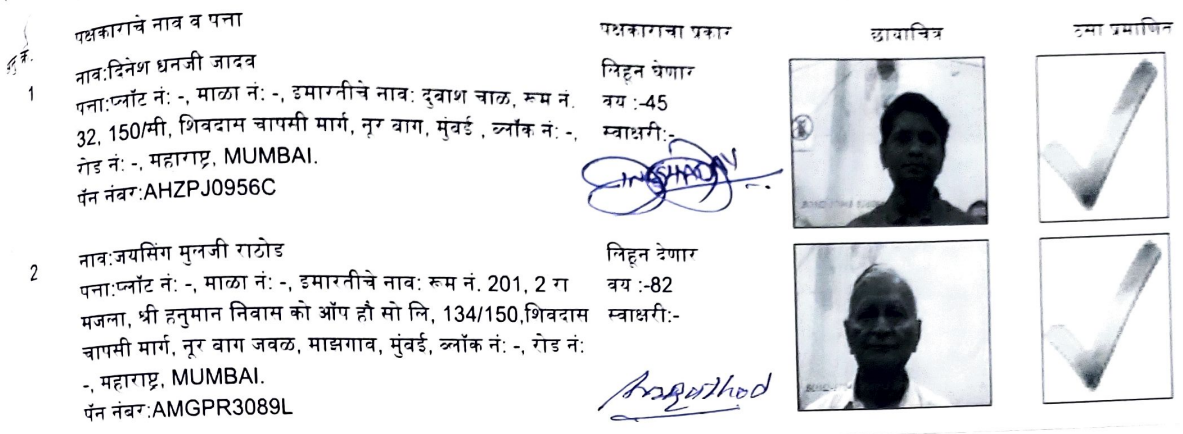 अनु क्र.
पक्षकाराचे नाव व पत्ता
पक्षकाराचा प्रकार
छायाचित्र
ठसा प्रमाणित
1
नाव:दिनेश धनजी जादव
पत्ता:प्लॉट नं: -, माळा नं: -, इमारतीचे नाव: दुबाश चाळ, रूम नं.
32, 150/सी, शिवदास चापसी मार्ग, नूर बाग, मुंबई , ब्लॉक नं: -,
रोड नं: -, महाराष्ट्र, MUMBAI.
पॅन नंबर:AHZPJ0956C
लिहून घेणार
वय :-45
स्वाक्षरी:-
2
नाव:जयसिंग मुलजी राठोड
पत्ता:प्लॉट नं: -, माळा नं: -, इमारतीचे नाव: रूम नं. 201, 2 रा
मजला, श्री हनुमान निवास को ऑप हौ सो लि, 134/150,शिवदास
चापसी मार्ग, नूर बाग जवळ, माझगाव, मुंबई, ब्लॉक नं: -, रोड नं:
-, महाराष्ट्र, MUMBAI.
पॅन नंबर:AMGPR3089L
लिहून देणार
वय :-82
स्वाक्षरी:-